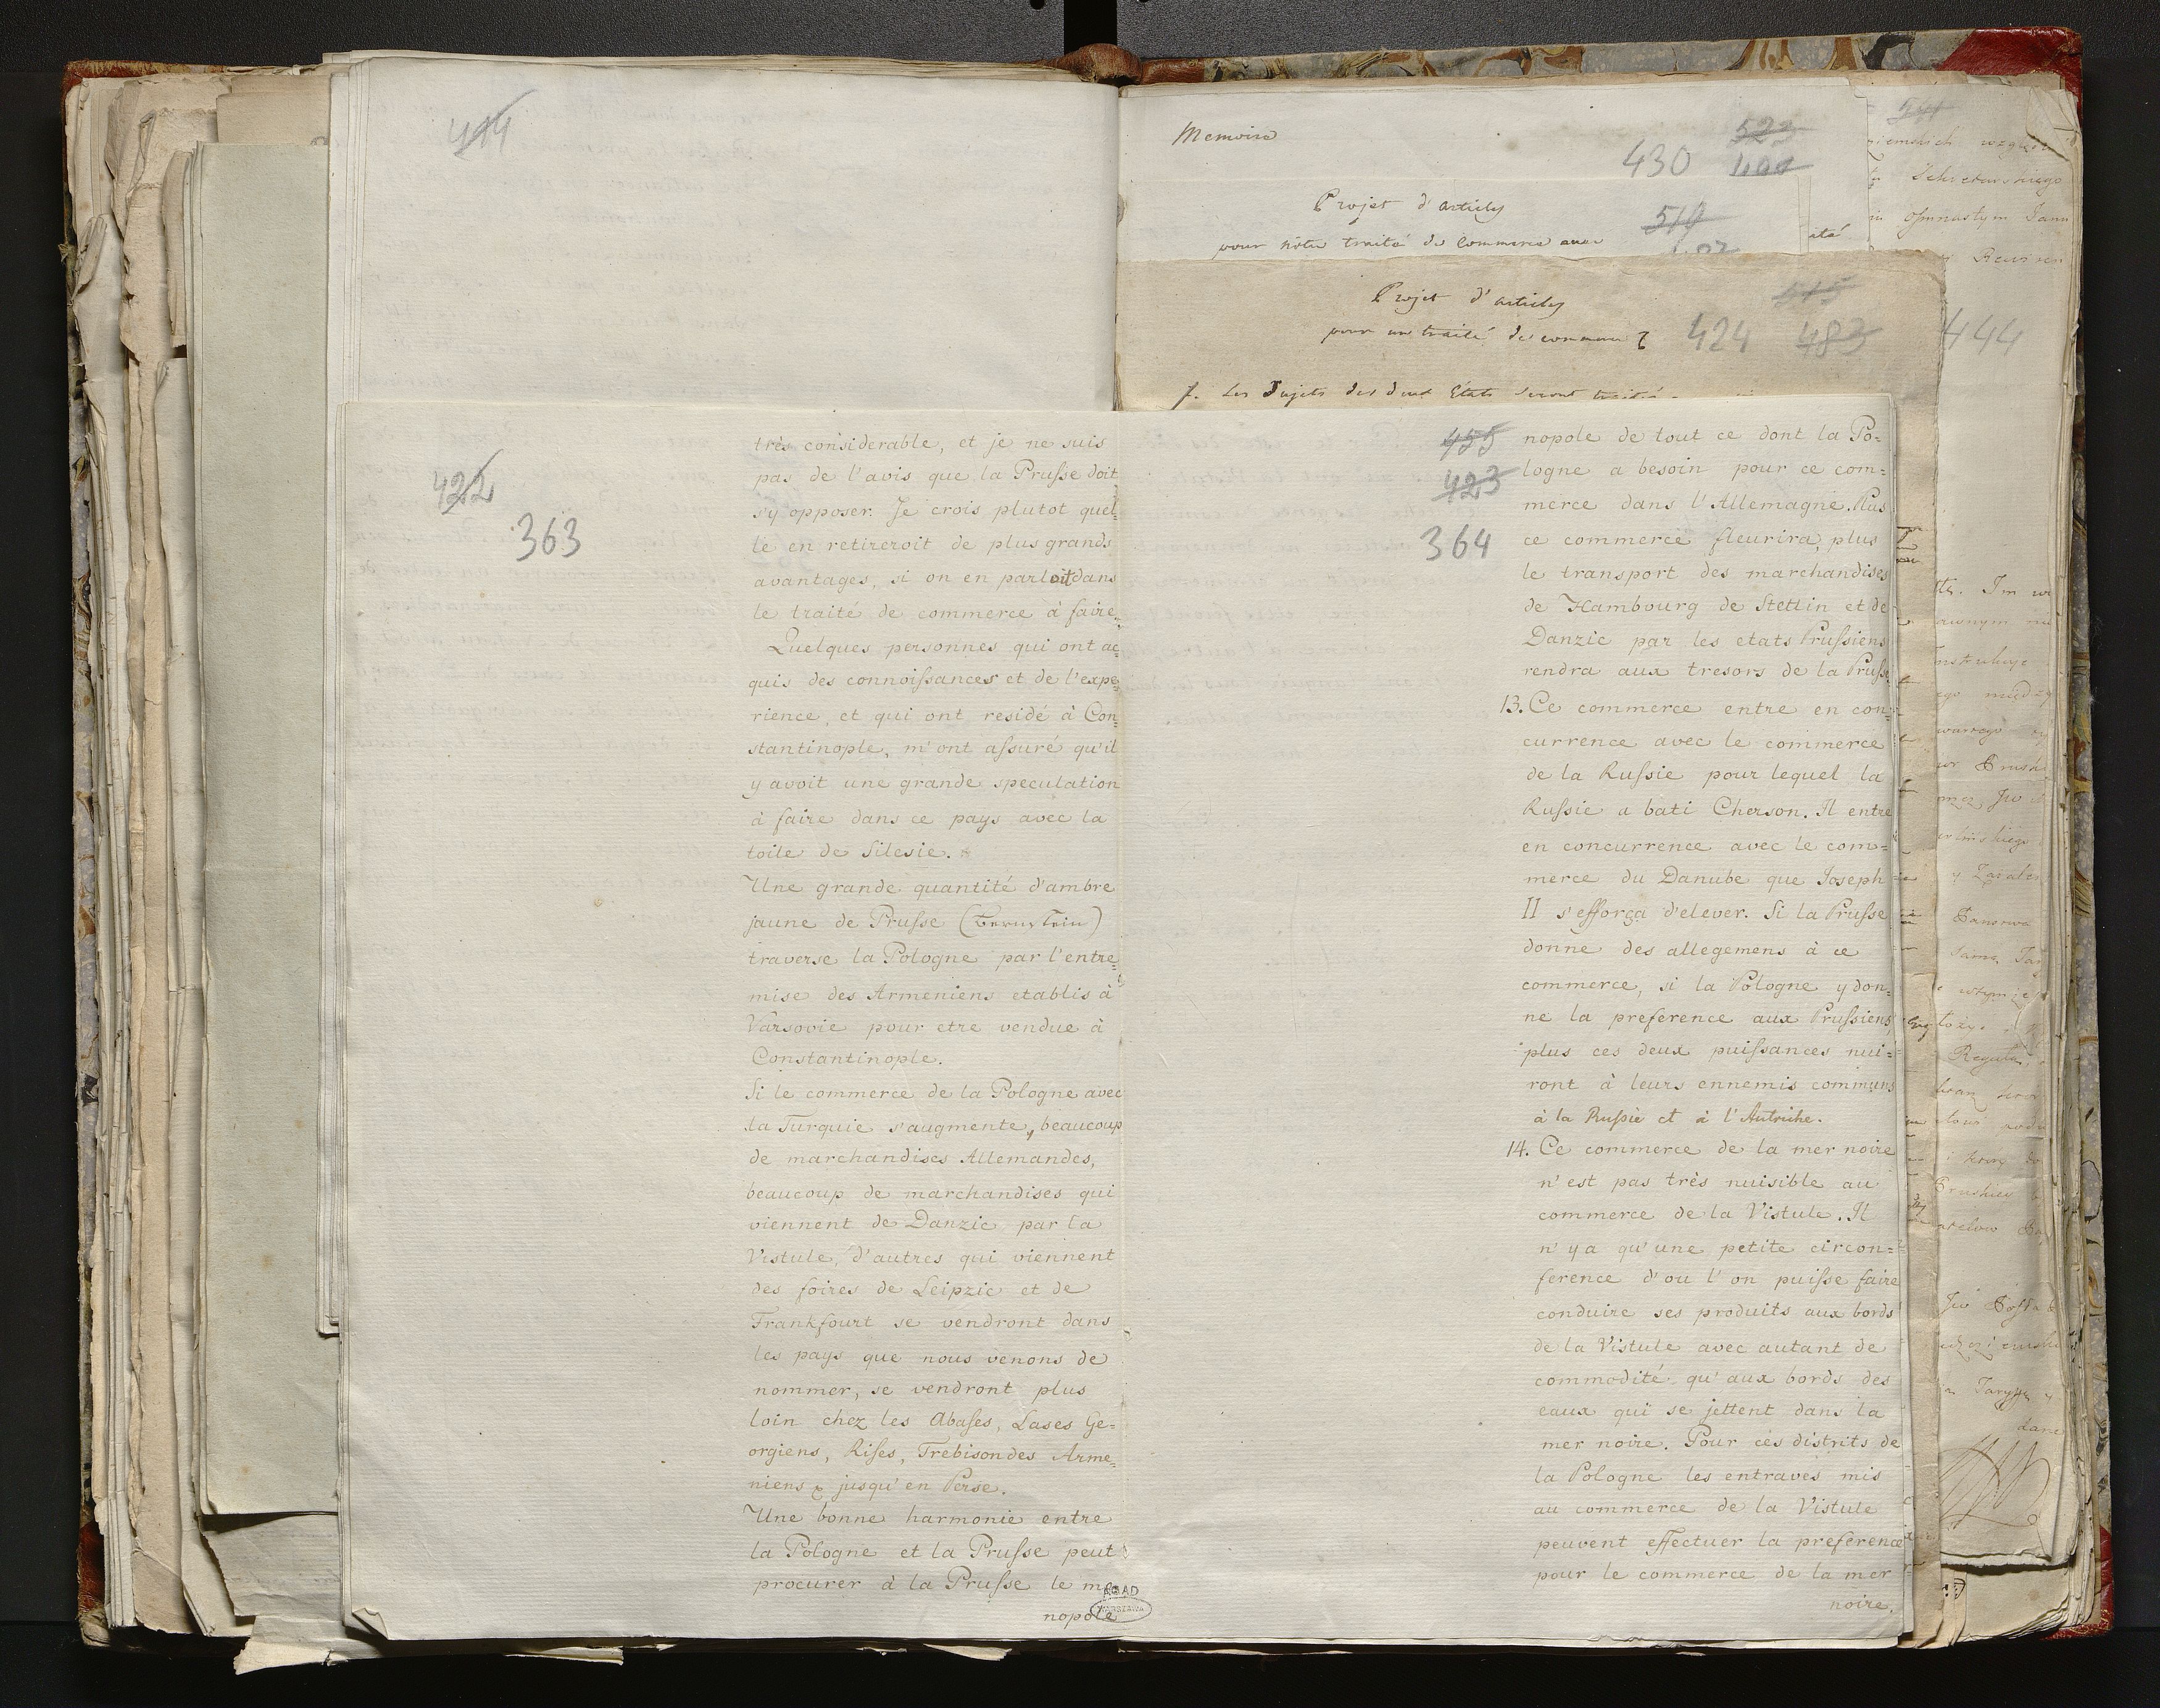 414
422
363
très considerable, et je ne suis
pas de l'avis que la Prusse doit
s'y opposer. Je crois plutot quel-
le en retireroit de plus grands
avantages, si on en parloit dans
le traité de commerce à faire.
Quelques personnes qui ont ac-
quis des connoissances et de l'expe-
rience, et qui ont residé à Con-
stantinople, m'ont assuré qu'il
y avoit une grande speculation
à faire dans ce pays avec la
toile de Silesie.
Une grande quantité d'ambre
jaune de Prusse (Bernstein)
traverse la Pologne par l'entre-
mise des Armeniens etablis à
Varsovie pour etre vendue à
Constantinople.
Si le commerce de la Pologne avec
la Turquie s'augmente, beaucoup
de marchandises Allemandes,
beaucoup de marchandises qui
viennent de Danzic par la
Vistule, d'autres qui viennent
des foires de Leipzic et de
Frankfourt se vendront dans
les pays que nous venons de
nommer, se vendront plus
loin chez les Abases, Lases Ge=
orgiens, Rises, Trebisondes Arme=
niens & jusqu'en Perse.
Une bonne harmonie entre
la Pologne et la Prusse peut
procurer à la Prusse le mo
nopole
AGAD
WARSZAWA
Memoire
523
430
Projet d'articles
510
pour nôtre traité de Commerce avec
Projet d'articles
515
pour un traité de commerce
424 483
1. Les Sujets des deux Etats seront
455
423
364
nopole de tout ce dont la Po=
logne a besoin pour ce com=
merce dans l'Allemagne. Plus
ce commerce fleurira, plus
le transport des marchandises
de Hambourg de Stettin et de
Danzic par les etats Prussiens
rendra aux tresors de la Prusse.
13. Ce commerce entre en con=
currence avec le commerce
de la Russie pour lequel la
Russie a bati Cherson. Il entre
en concurrence avec le com=
merce du Danube que Joseph
II s'efforça d'elever. Si la Prusse
donne des allegemens à ce
commerce, si la Pologne y don=
ne la preference aux Prussiens,
plus ces deux puissances nui=
ront à leurs ennemis communs
à la Russie et à l'Autriche.
14. Ce commerce de la mer noire
n'est pas très nuisible au
commerce de la Vistule. Il
n'y a qu'une petite circon=
ference d'ou l'on puisse faire
conduire ses produits aux bords
de la Vistule avec autant de
commodité qu'aux bords des
eaux qui se jettent dans la
mer noire. Pour ces distrits de
la Pologne les entraves mis
au commerce de la Vistule
peuvent effectuer la preference
pour le commerce de la mer
noire.
444